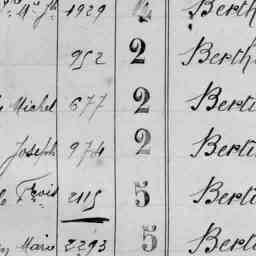 1929 Berth
952 2 Berth
Michel 677 2 Berti
Joseph 974 2 Berti
2115 5 Berti
Marie 2293 5 Berti